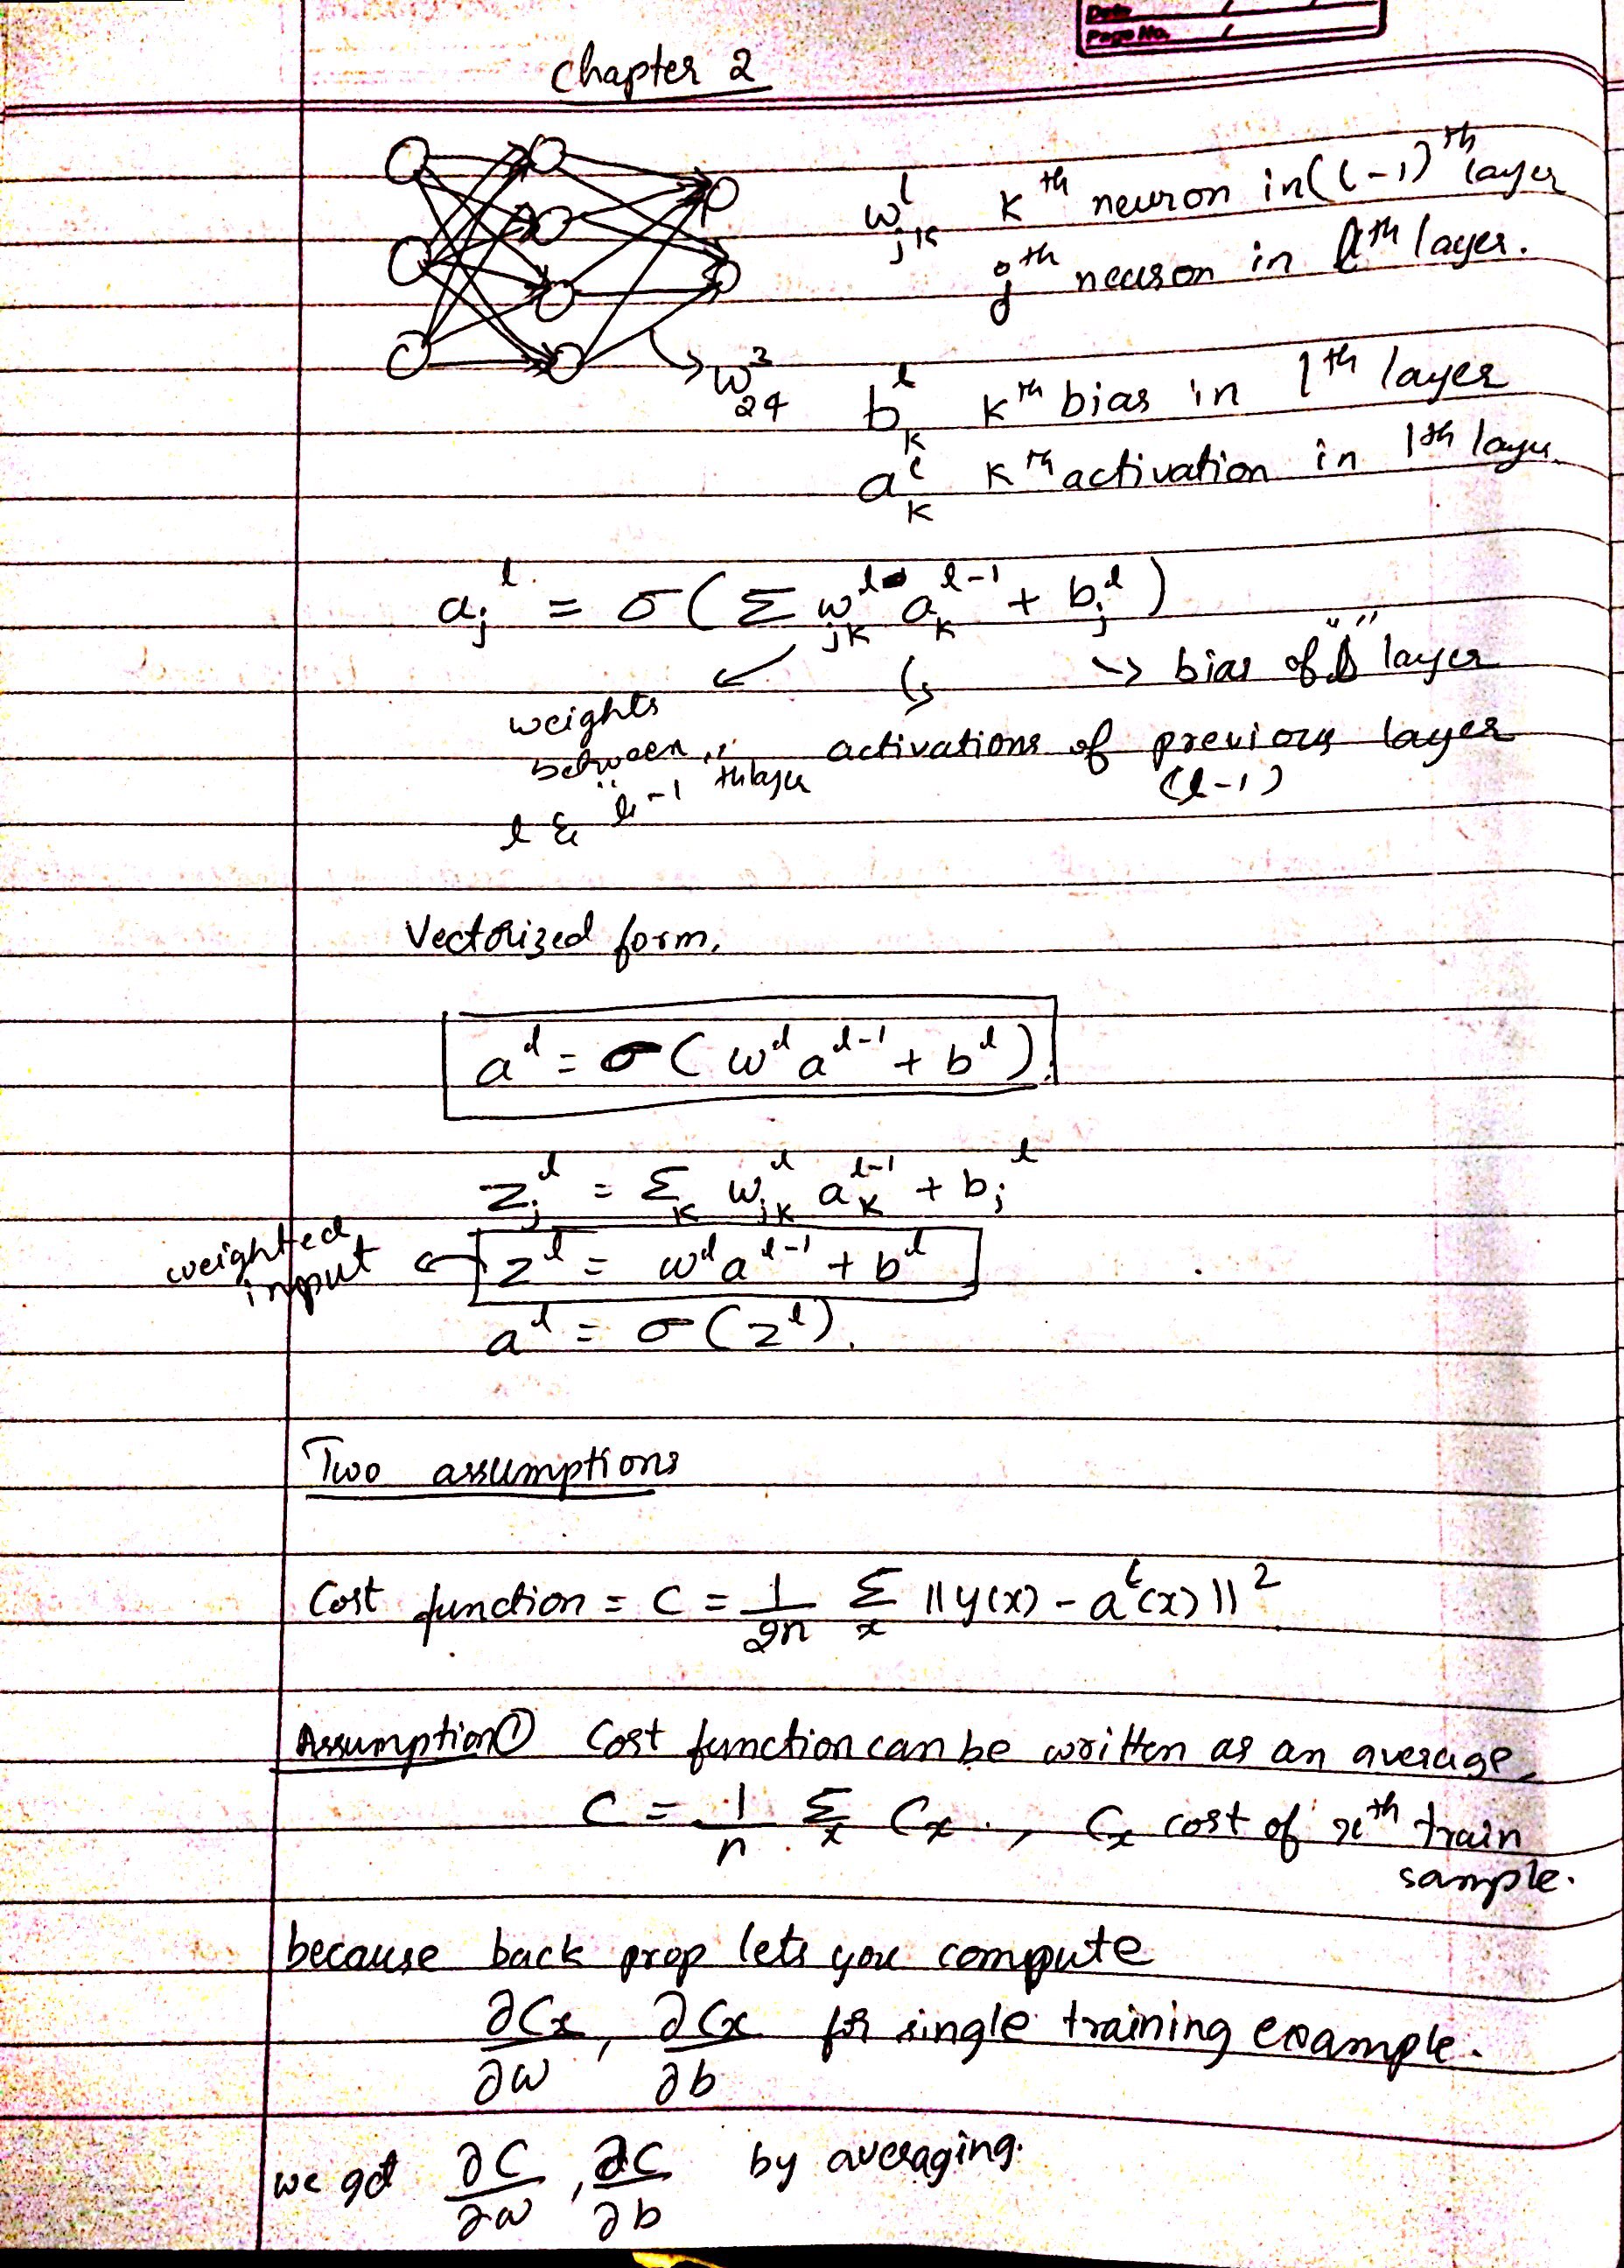 Date / /
Page No. /
Chapter 2
w^l_jk k^th neuron in (l-1)^th layer
j^th neuron in l^th layer.
w^3_24
b^l_k k^th bias in l^th layer
a^l_k k^th activation in l^th layer
a_j^l = σ(Σ w^l_jk a_k^l-1 + b_j^l)
↳ bias of "l" layer
weights between l & "l-1" th layer
activations of previous layer
(l-1)
Vectorized form,
a^l = σ(w^l a^l-1 + b^l).
z_j^l = Σ_k w^l_jk a_k^l-1 + b_j^l
weighted input ← z^l = w^l a^l-1 + b^l
a^l = σ(z^l).
Two assumptions
Cost function = C = 1/2n Σ_x ||y(x) - a^L(x)||^2
Assumption ① Cost function can be written as an average,
C = 1/n Σ_x C_x , C_x cost of x^th train
sample.
because back prop lets you compute
∂C_x/∂w, ∂C_x/∂b for single training example.
we get ∂C/∂w, ∂C/∂b by averaging.